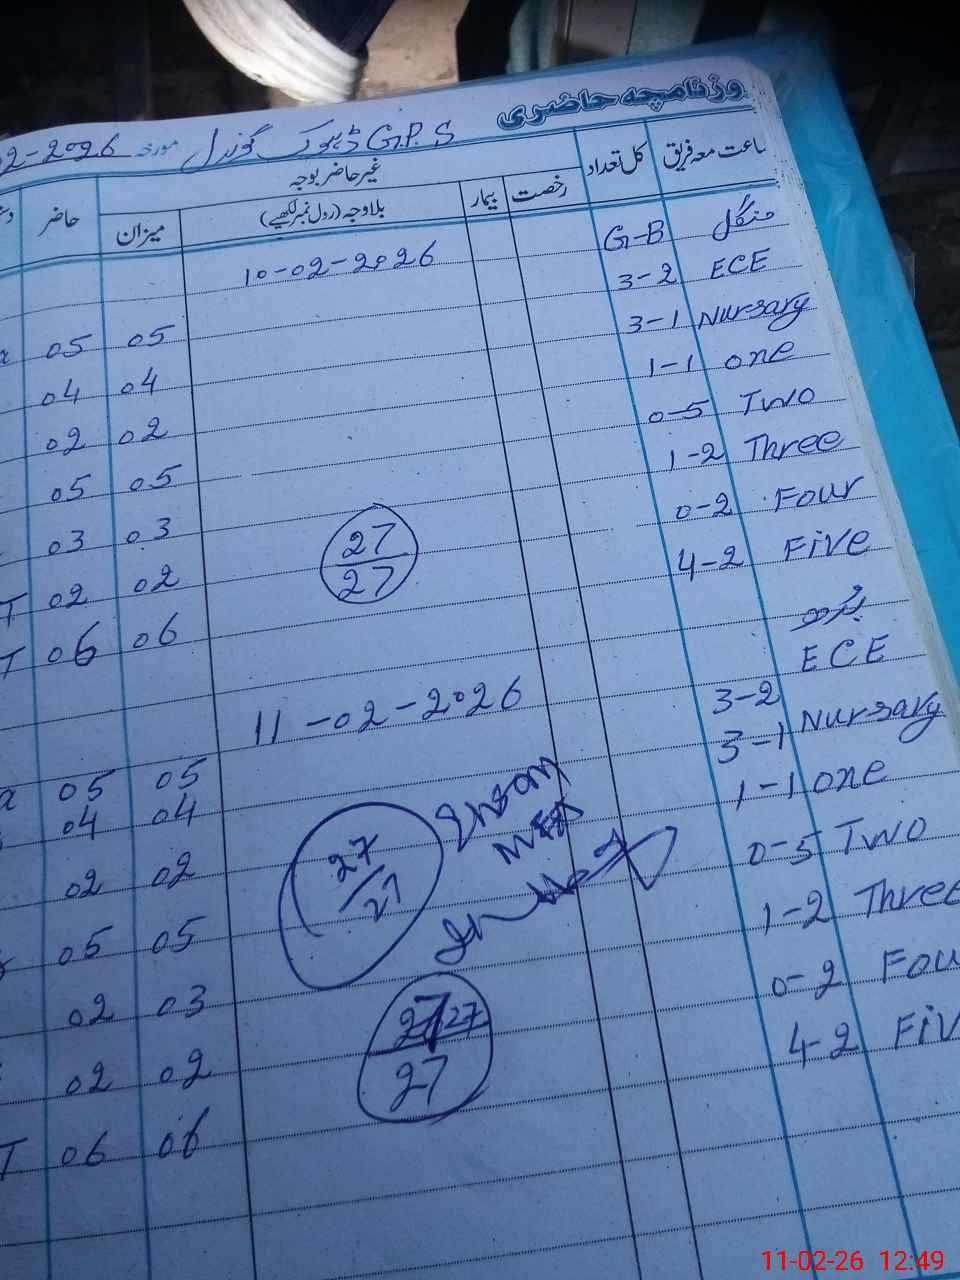 روزنامچہ حاضری
G.P.S ڈہوک گوندل مورخہ 02-2026
ساعت معہ فریق کل تعداد غیر حاضر بوجہ حاضر
رخصت بیمار بلاوجہ (رول نمبر لکھیے) میزان
منگل G-B 10-02-2026
ECE 3-2 05 05
Nursary 3-1 04 04
one 1-1 02 02
Two 0-5 05 05
Three 1-2 03 03
Four 0-2 02 02 T
Five 4-2 06 06 T
27
27
بدھ 11-02-2026
ECE 3-2 05 05
Nursary 3-1 04 04
one 1-1 02 02
Two 0-5 05 05
Three 1-2 03 02
Four 0-2 02 02
Five 4-2 06 06 T
27
27
MEA
27 27
27
11-02-26 12:49